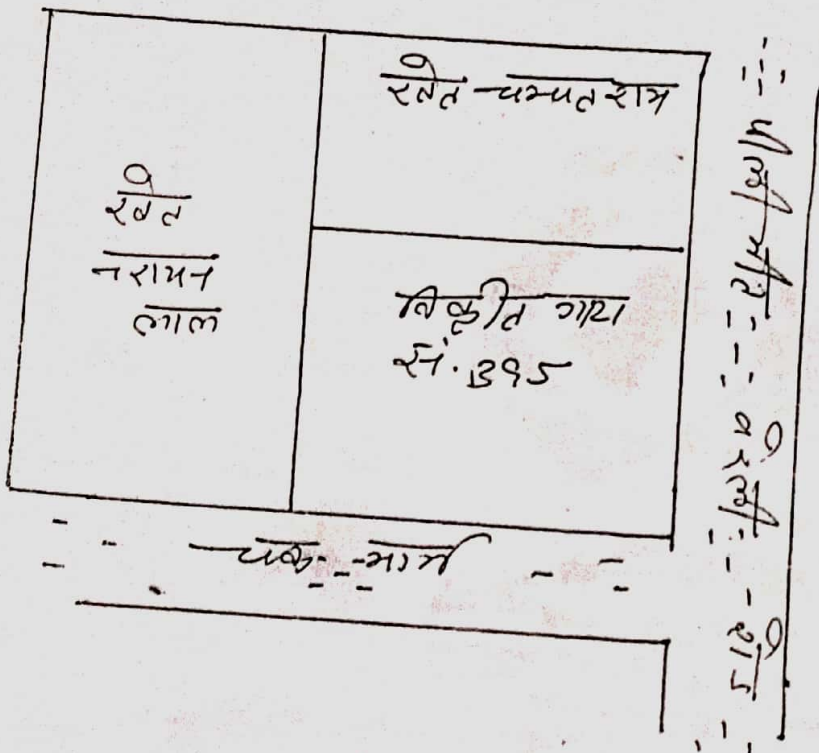 खेत चम्पत राम
खेत
नरायन
लाल
विक्रीत गाटा
सं. 395
चक मार्ग
पीलीभीत बरेली रोड